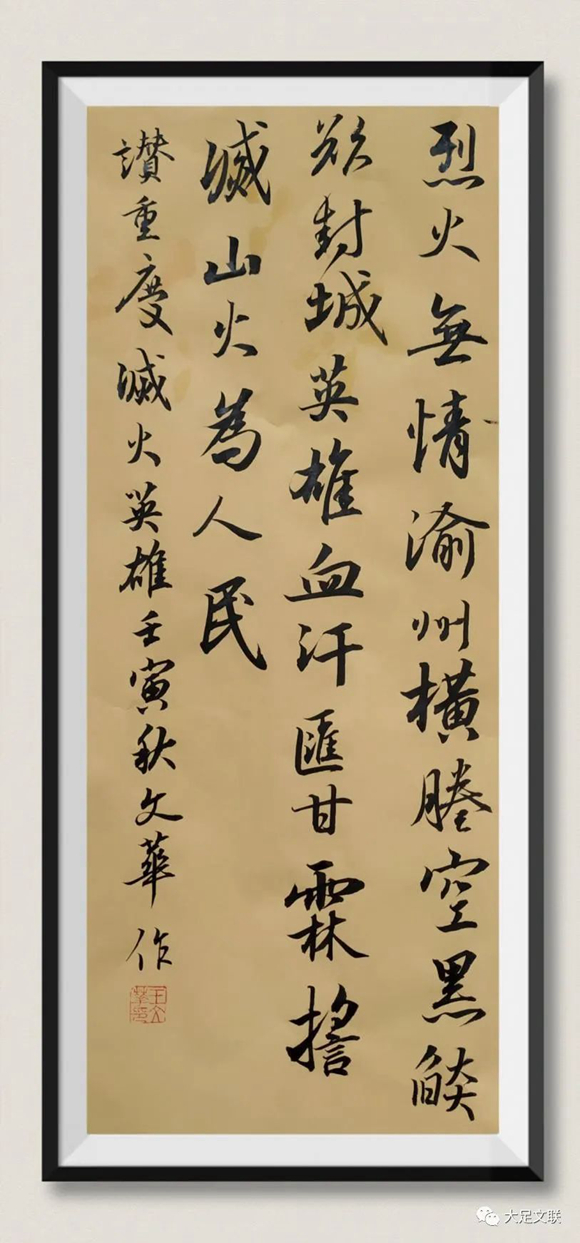 烈火無情渝州橫塍空黑燄
欲封城英雄血汗匯甘霖擔
滅山火為人民
讚重慶滅火英雄壬寅秋文華作
王文華印
大足文联